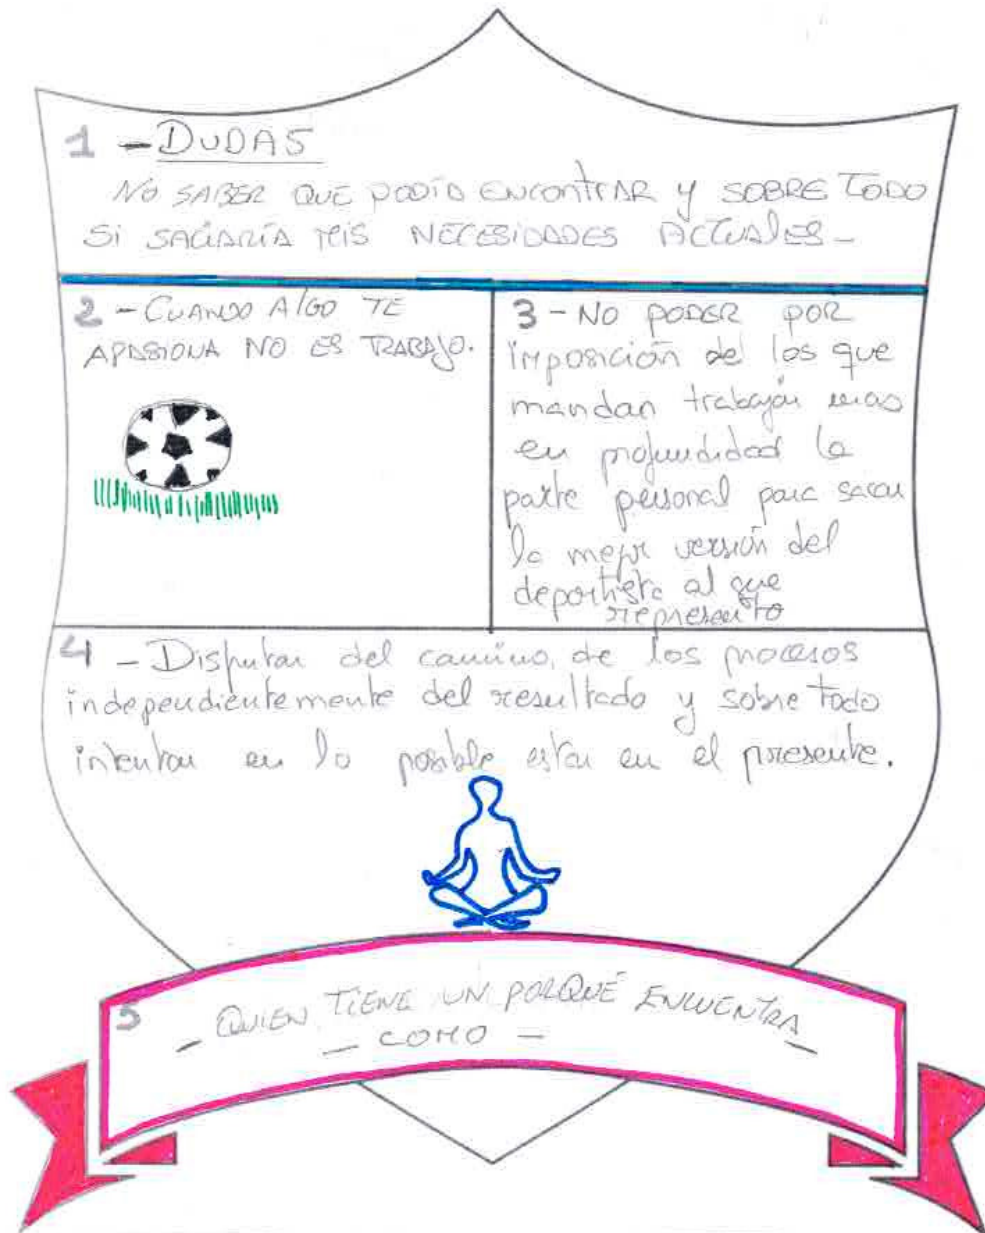 1 - DUDAS
NO SABER QUE PODÍA ENCONTRAR Y SOBRE TODO
SI SACIARÍA MIS NECESIDADES ACTUALES -
2 - CUANDO ALGO TE
APASIONA NO ES TRABAJO.
3 - NO PODER POR
imposición de los que
mandan trabajar mas
en profundidad la
parte personal para sacar
la mejor versión del
deportista al que
represento
4 - Disfrutar del camino, de los procesos
independientemente del resultado y sobre todo
intentar en lo posible estar en el presente.
5
- QUIEN TIENE UN PORQUÉ ENCUENTRA -
- COMO -